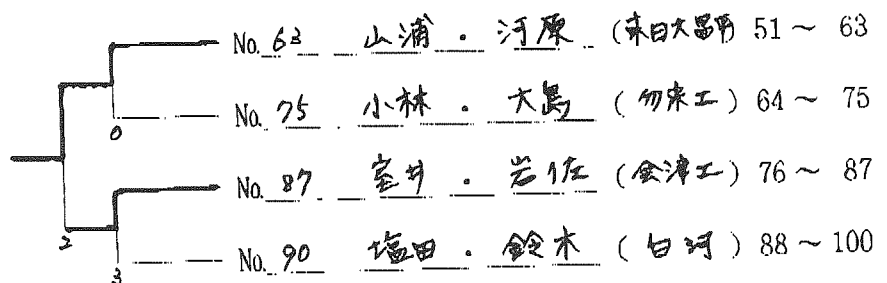 No. 63 山浦・河原 (東日大昌平) 51～63
0
No. 75 小林・大島 (勿来工) 64～75
No. 87 室井・岩佐 (会津工) 76～87
2
No. 90 塩田・鈴木 (白河) 88～100
3